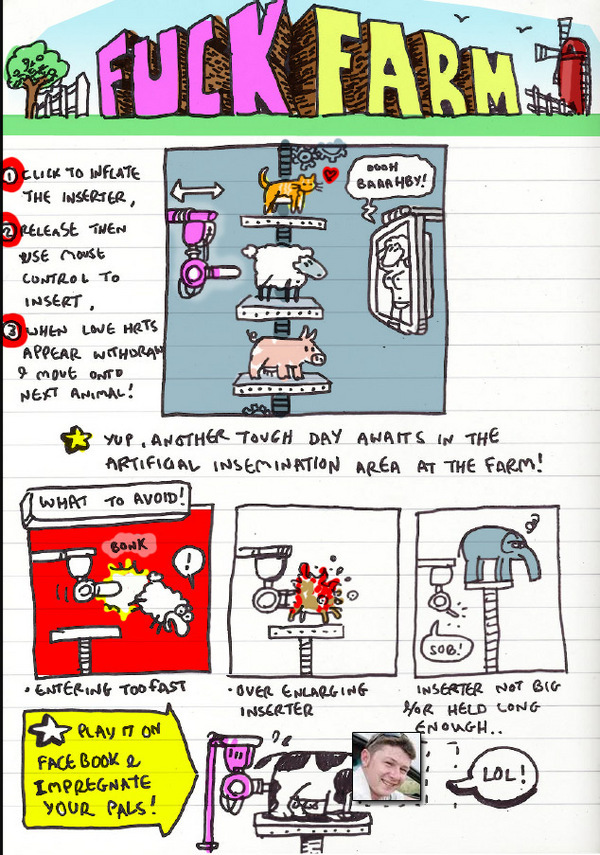 FUCK FARM
1 CLICK TO INFLATE
THE INSERTER,
2 RELEASE THEN
USE MOUSE
CONTROL TO
INSERT,
3 WHEN LOVE HRTS
APPEAR WITHDRAW
& MOVE ONTO
NEXT ANIMAL!
OOOH
BAAAHBY!
YUP, ANOTHER TOUGH DAY AWAITS IN THE
ARTIFICIAL INSEMINATION AREA AT THE FARM!
WHAT TO AVOID!
BONK
!
SOB!
• ENTERING TOO FAST
• OVER ENLARGING
INSERTER
INSERTER NOT BIG
&/OR HELD LONG
ENOUGH..
PLAY IT ON
FACEBOOK &
IMPREGNATE
YOUR PALS!
LOL!